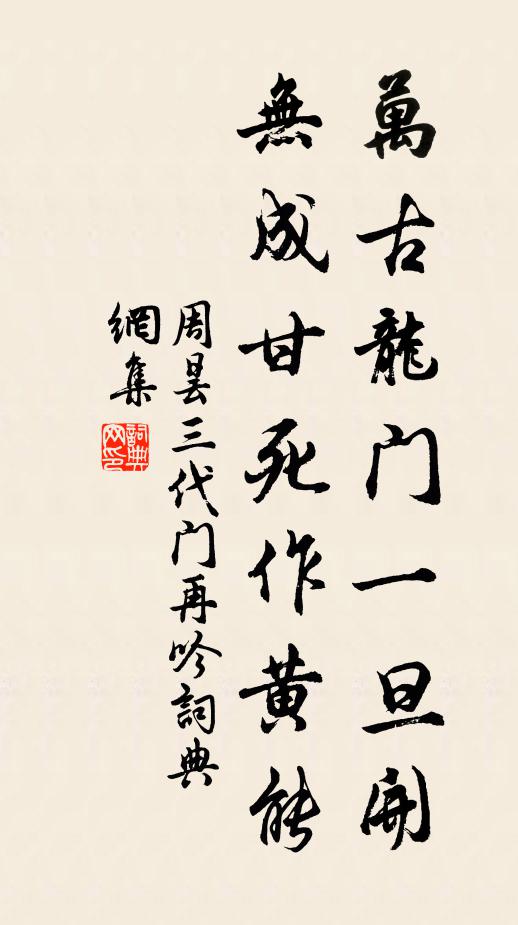 萬古龍门一旦開
無成甘死作黄能
周昙三代门再吟詞典
網集
詞典
网印